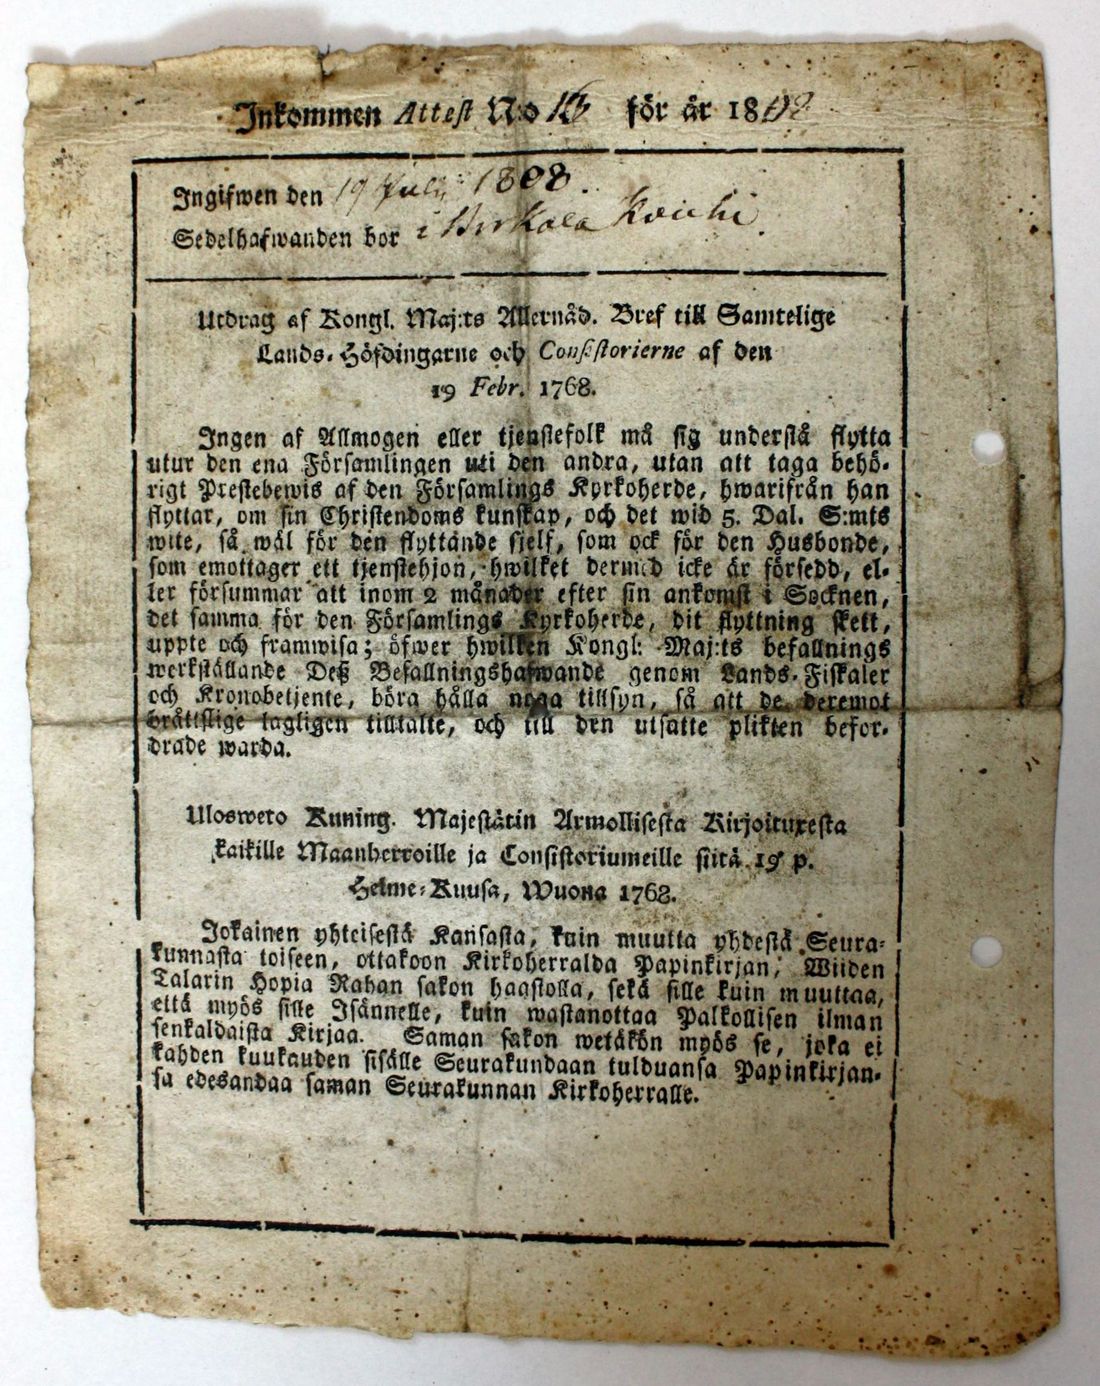 Inkommen Attest N:o 16 för år 1808
Ingifwen den 19 Julii 1808.
Sedelhafwanden bor i
Utdrag af Kongl. Maj:ts Allernåd. Bref till Samtelige
Lands-Höfdingarne och Consistorierne af den
19 Febr. 1768.
Ingen af Allmogen eller tjenstefolk må sig understå flytta
utur den ena Församlingen uti den andra, utan att taga behö-
rigt Prestebewis af den Församlings Kyrkoherde, hwarifrån han
flyttar, om sin Christendoms kunskap, och det wid 5. Dal. S:mts
wite, så wäl för den flyttande sjelf, som ock för den Husbonde,
som emottager ett tjenstehjon, hwilket dermed icke är försedd, el-
ler försummar att inom 2 månader efter sin ankomst i Socknen,
det samma för den Församlings Kyrkoherde, dit flyttning skett,
uppte och framwisa; öfwer hwilken Kongl: Maj:ts befallnings
werkställande Deß Befallningshafwande genom Lands-Fiskaler
och Kronobetjente, böra hålla noga tillsyn, så att de deremot
bråttslige lagligen tilltalte, och till den utsatte plikten befor-
drade warda.
Ulosweto Kuning. Majestätin Armollisesta Kirjoituxesta
kaikille Maanherroille ja Consistoriumeille siitä 19 p.
Helme-Kuusa, Wuona 1768.
Jokainen yhteisestä Kansasta, kuin muutta yhdestä Seura-
kunnasta toiseen, ottakoon Kirkoherralda Papinkirjan, Wiiden
Talarin Hopia Rahan sakon haastolla, sekä sille kuin muuttaa,
että myös sille Isännelle, kuin wastanottaa Palkollisen ilman
senkaldaista Kirjaa. Saman sakon wetäkön myös se, joka ei
kahden kuukauden sisälle Seurakundaan tulduansa Papinkirjan-
sa edesandaa saman Seurakunnan Kirkoherralle.